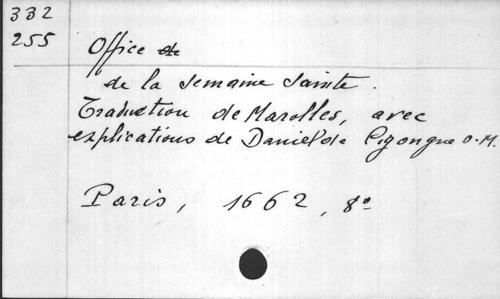 332
255
Office de
de la semaine sainte.
Traduction de Marolles, avec
explications de Daniel de Cigongne O.M.
Paris, 1662, 8º